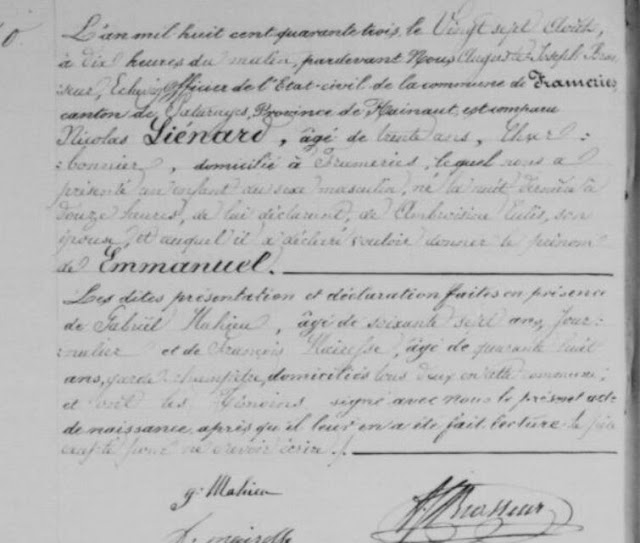 L'an mil huit cent quarante trois, le Vingt sept Août,
à dix heures du matin, pardevant Nous Auguste Joseph Bras
seur, Echevin Officier de l'Etat-civil de la commune de Frameries
canton de Paturages, Province de Hainaut, est comparu
Nicolas Liénard, âgé de trente ans, Char
bonnier, domicilié à Frameries, lequel nous a
présenté un enfant du sexe masculin, né la nuit dernière à
douze heures, de lui déclarant, de Ambroisine son
épouse, et auquel il a déclaré vouloir donner le prénom
de Emmanuel.
Les dites présentation et déclaration faites en présence
de Gabriël Mahieu, âgé de soixante sept ans, Jour-
nalier et de François Nairesse, âgé de quarante huit
ans, garde champêtre, domiciliés tous deux en cette commune;
et ont les témoins signé avec nous le présent acte
de naissance après qu'il leur en a été fait lecture le père
excepté pour ne savoir écrire ./.
g. Mahieu
Brasseur